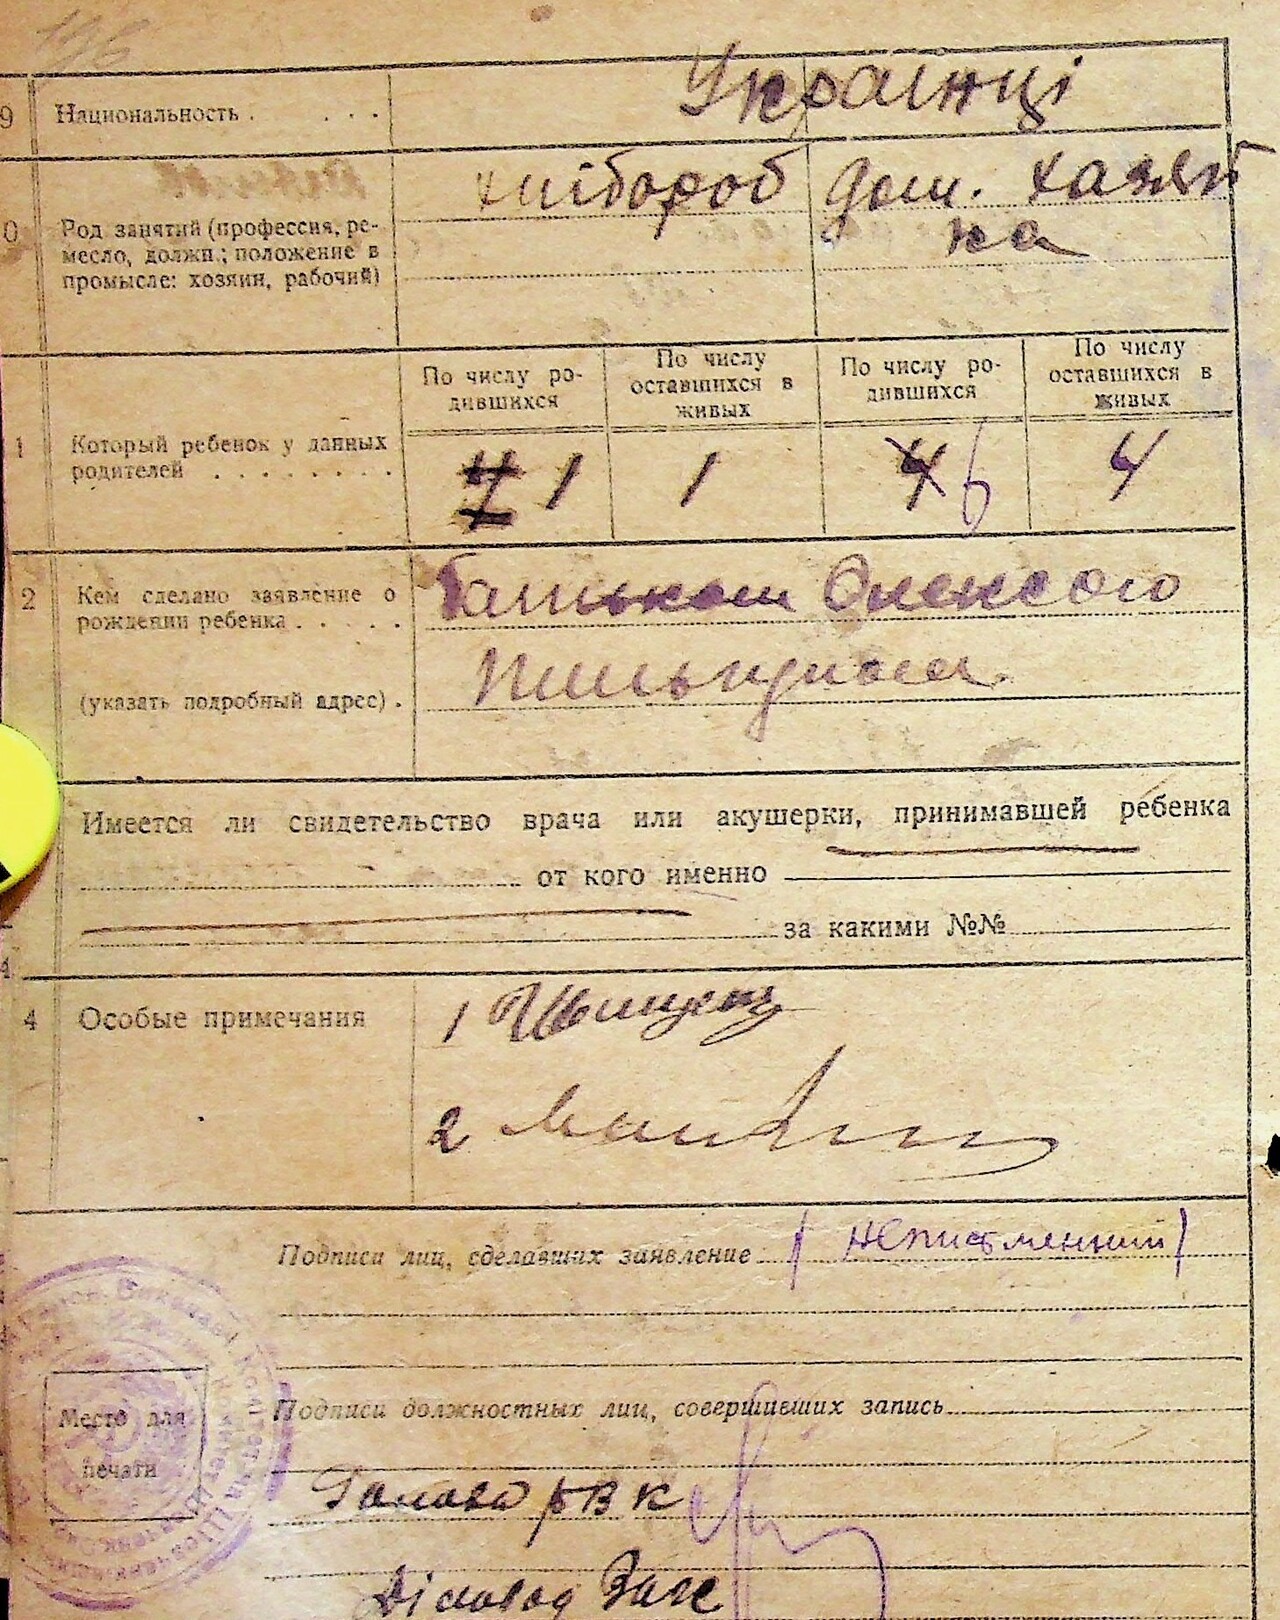 196
9 Национальность . . . . Українці
0 Род занятий (профессия, ре-
месло, должн.; положение в
промысле: хозяин, рабочий)
хлібороб дом. хазяй
ка
По числу ро-
дившихся
По числу
оставшихся в
живых
По числу ро-
дившихся
По числу
оставшихся в
живых
1 Который ребенок у данных
родителей . . . . . . . .
1 1 4 6 4
2 Кем сделано заявление о
рождении ребенка . . . . .
Батьком Олексою
(указать подробный адрес) .
Имеется ли свидетельство врача или акушерки, принимавшей ребенка
от кого именно
за какими №№
4 Особые примечания
1
2
Подписи лиц, сделавших заявление (неписьменний)
Подписи должностных лиц, совершивших запись
Место для
печати
Голова РВК
Діловод Загс